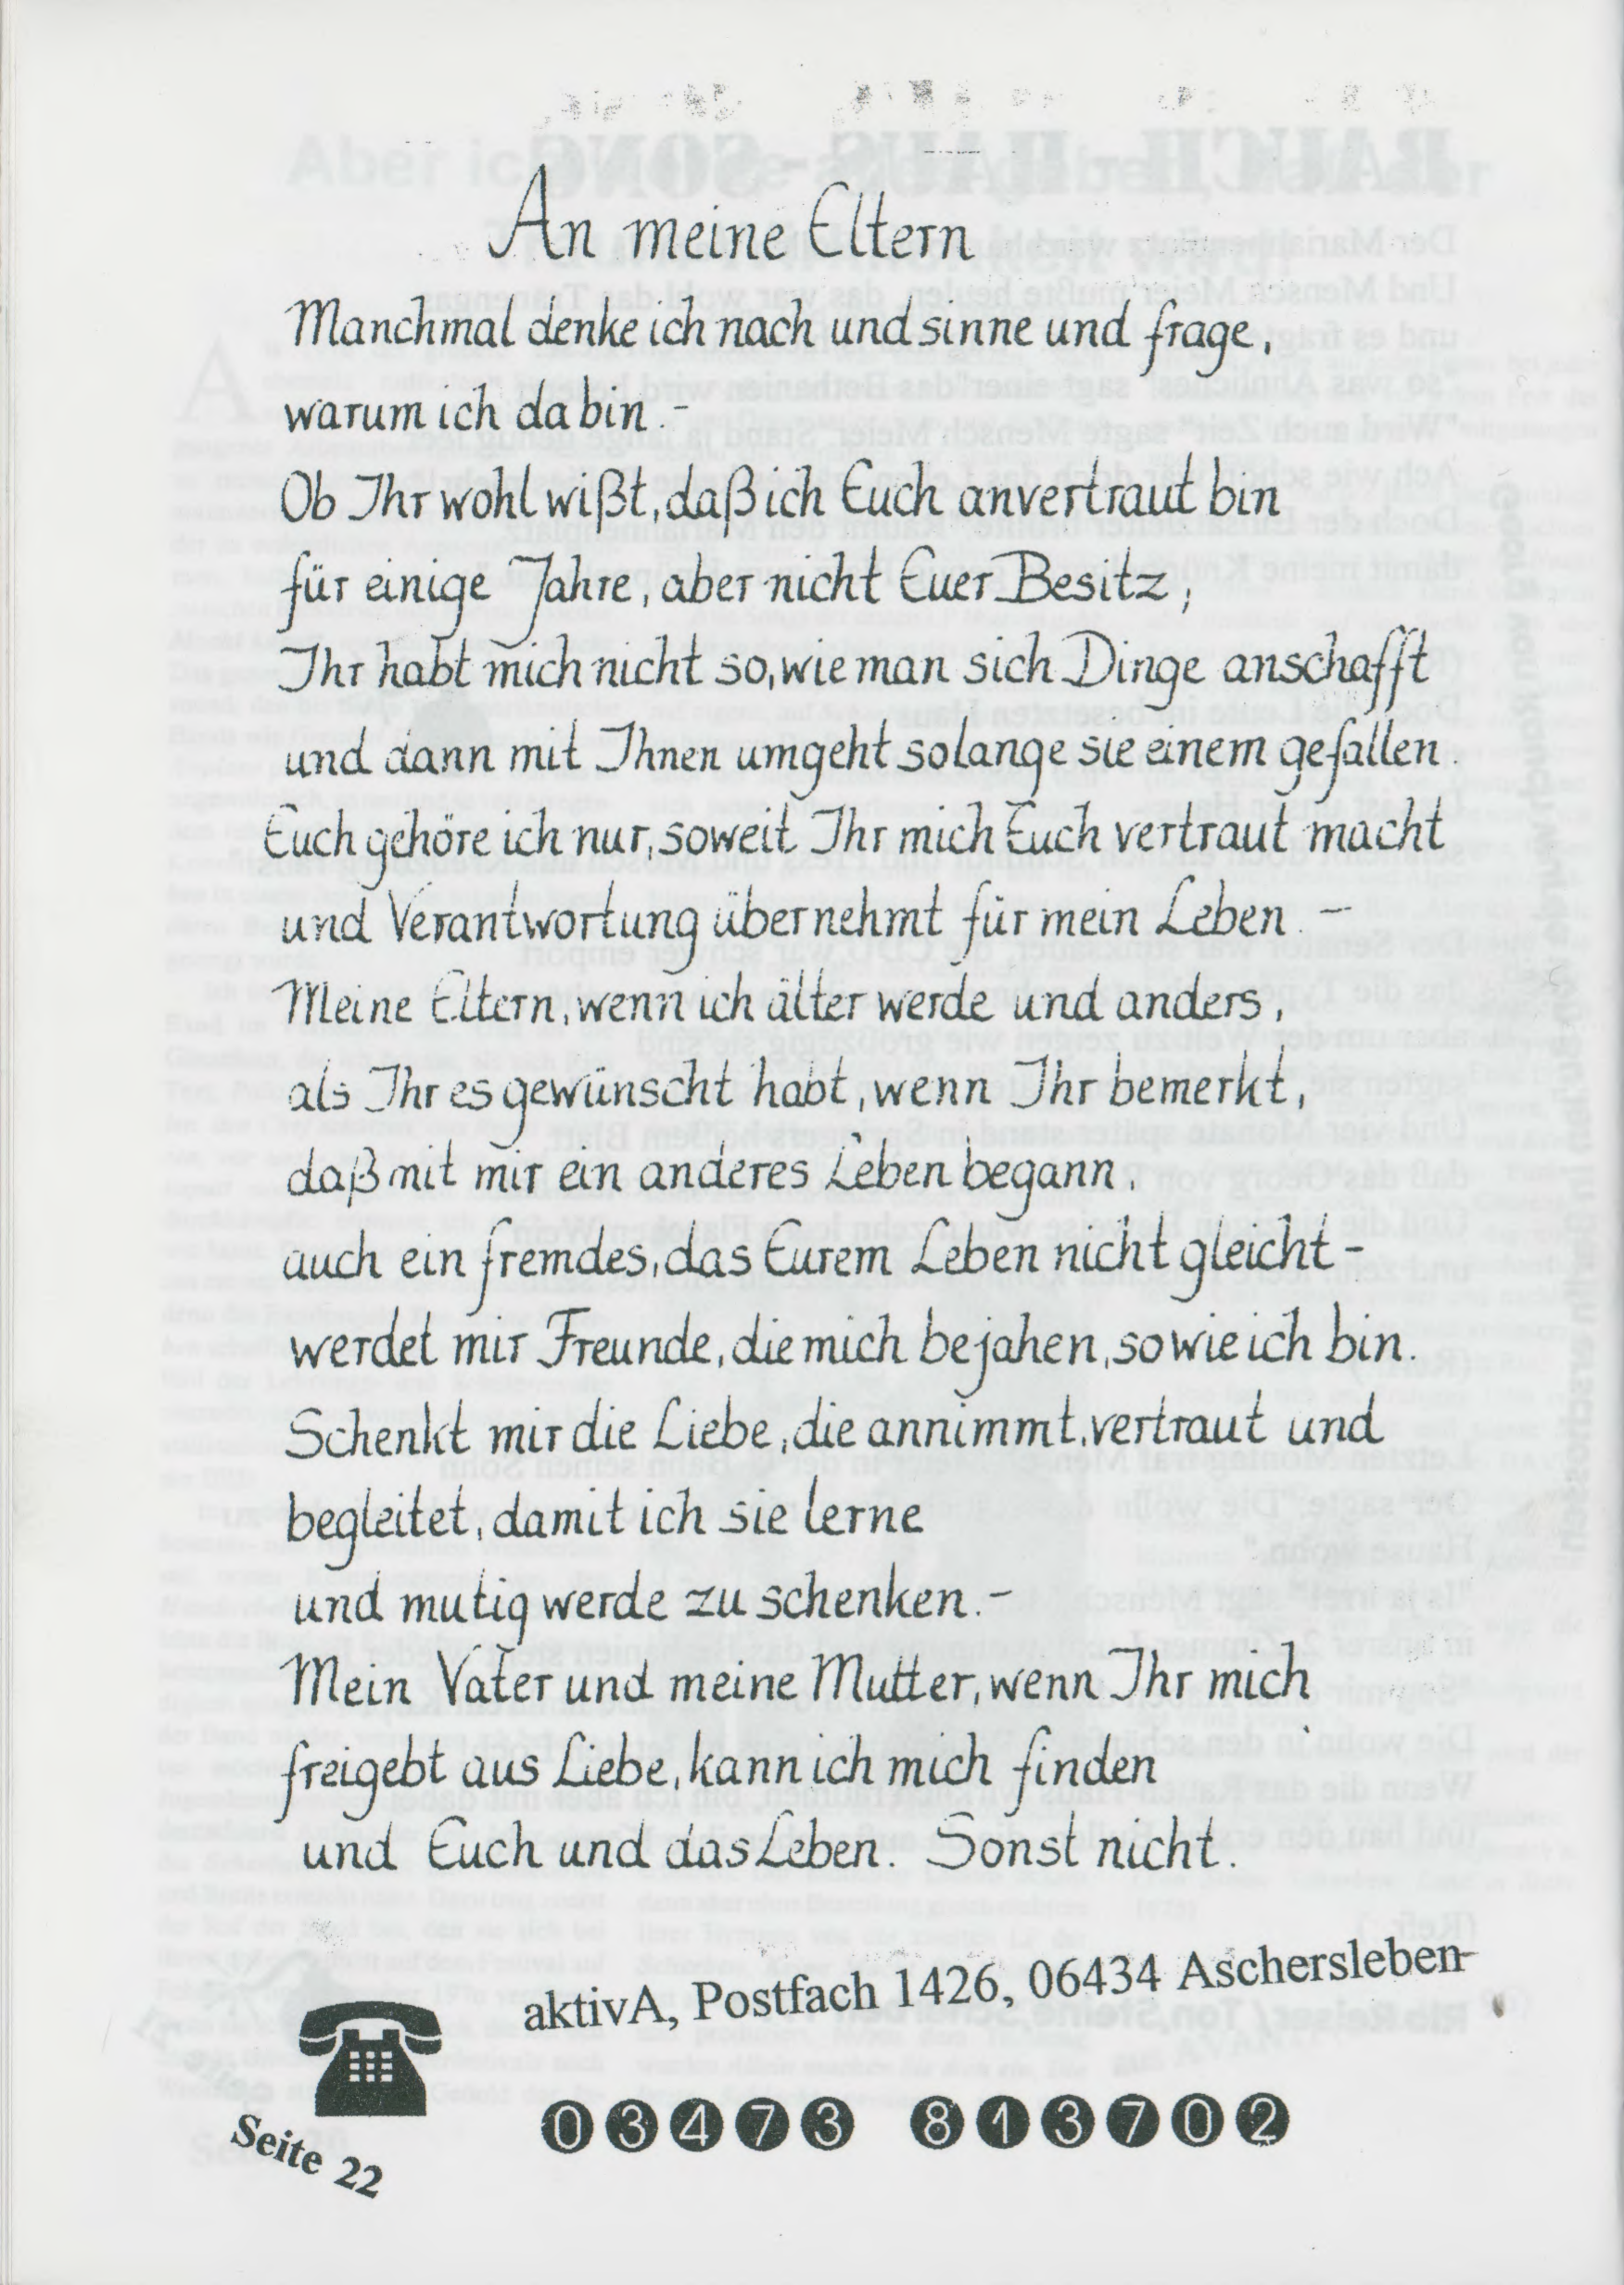 An meine Eltern
Manchmal denke ich nach und sinne und frage,
warum ich da bin.-
Ob Ihr wohl wißt, daß ich Euch anvertraut bin
für einige Jahre, aber nicht Euer Besitz;
Ihr habt mich nicht so, wie man sich Dinge anschafft
und dann mit Ihnen umgeht solange sie einem gefallen.
Euch gehöre ich nur, soweit Ihr mich Euch vertraut macht
und Verantwortung übernehmt für mein Leben.-
Meine Eltern, wenn ich älter werde und anders,
als Ihr es gewünscht habt, wenn Ihr bemerkt,
daß mit mir ein anderes Leben begann,
auch ein fremdes, das Eurem Leben nicht gleicht-
werdet mir Freunde, die mich bejahen, so wie ich bin.
Schenkt mir die Liebe, die annimmt, vertraut und
begleitet, damit ich sie lerne
und mutig werde zu schenken.-
Mein Vater und meine Mutter, wenn Ihr mich
freigebt aus Liebe, kann ich mich finden
und Euch und das Leben. Sonst nicht.
aktivA, Postfach 1426, 06434 Aschersleben
03473 813702
Seite 22